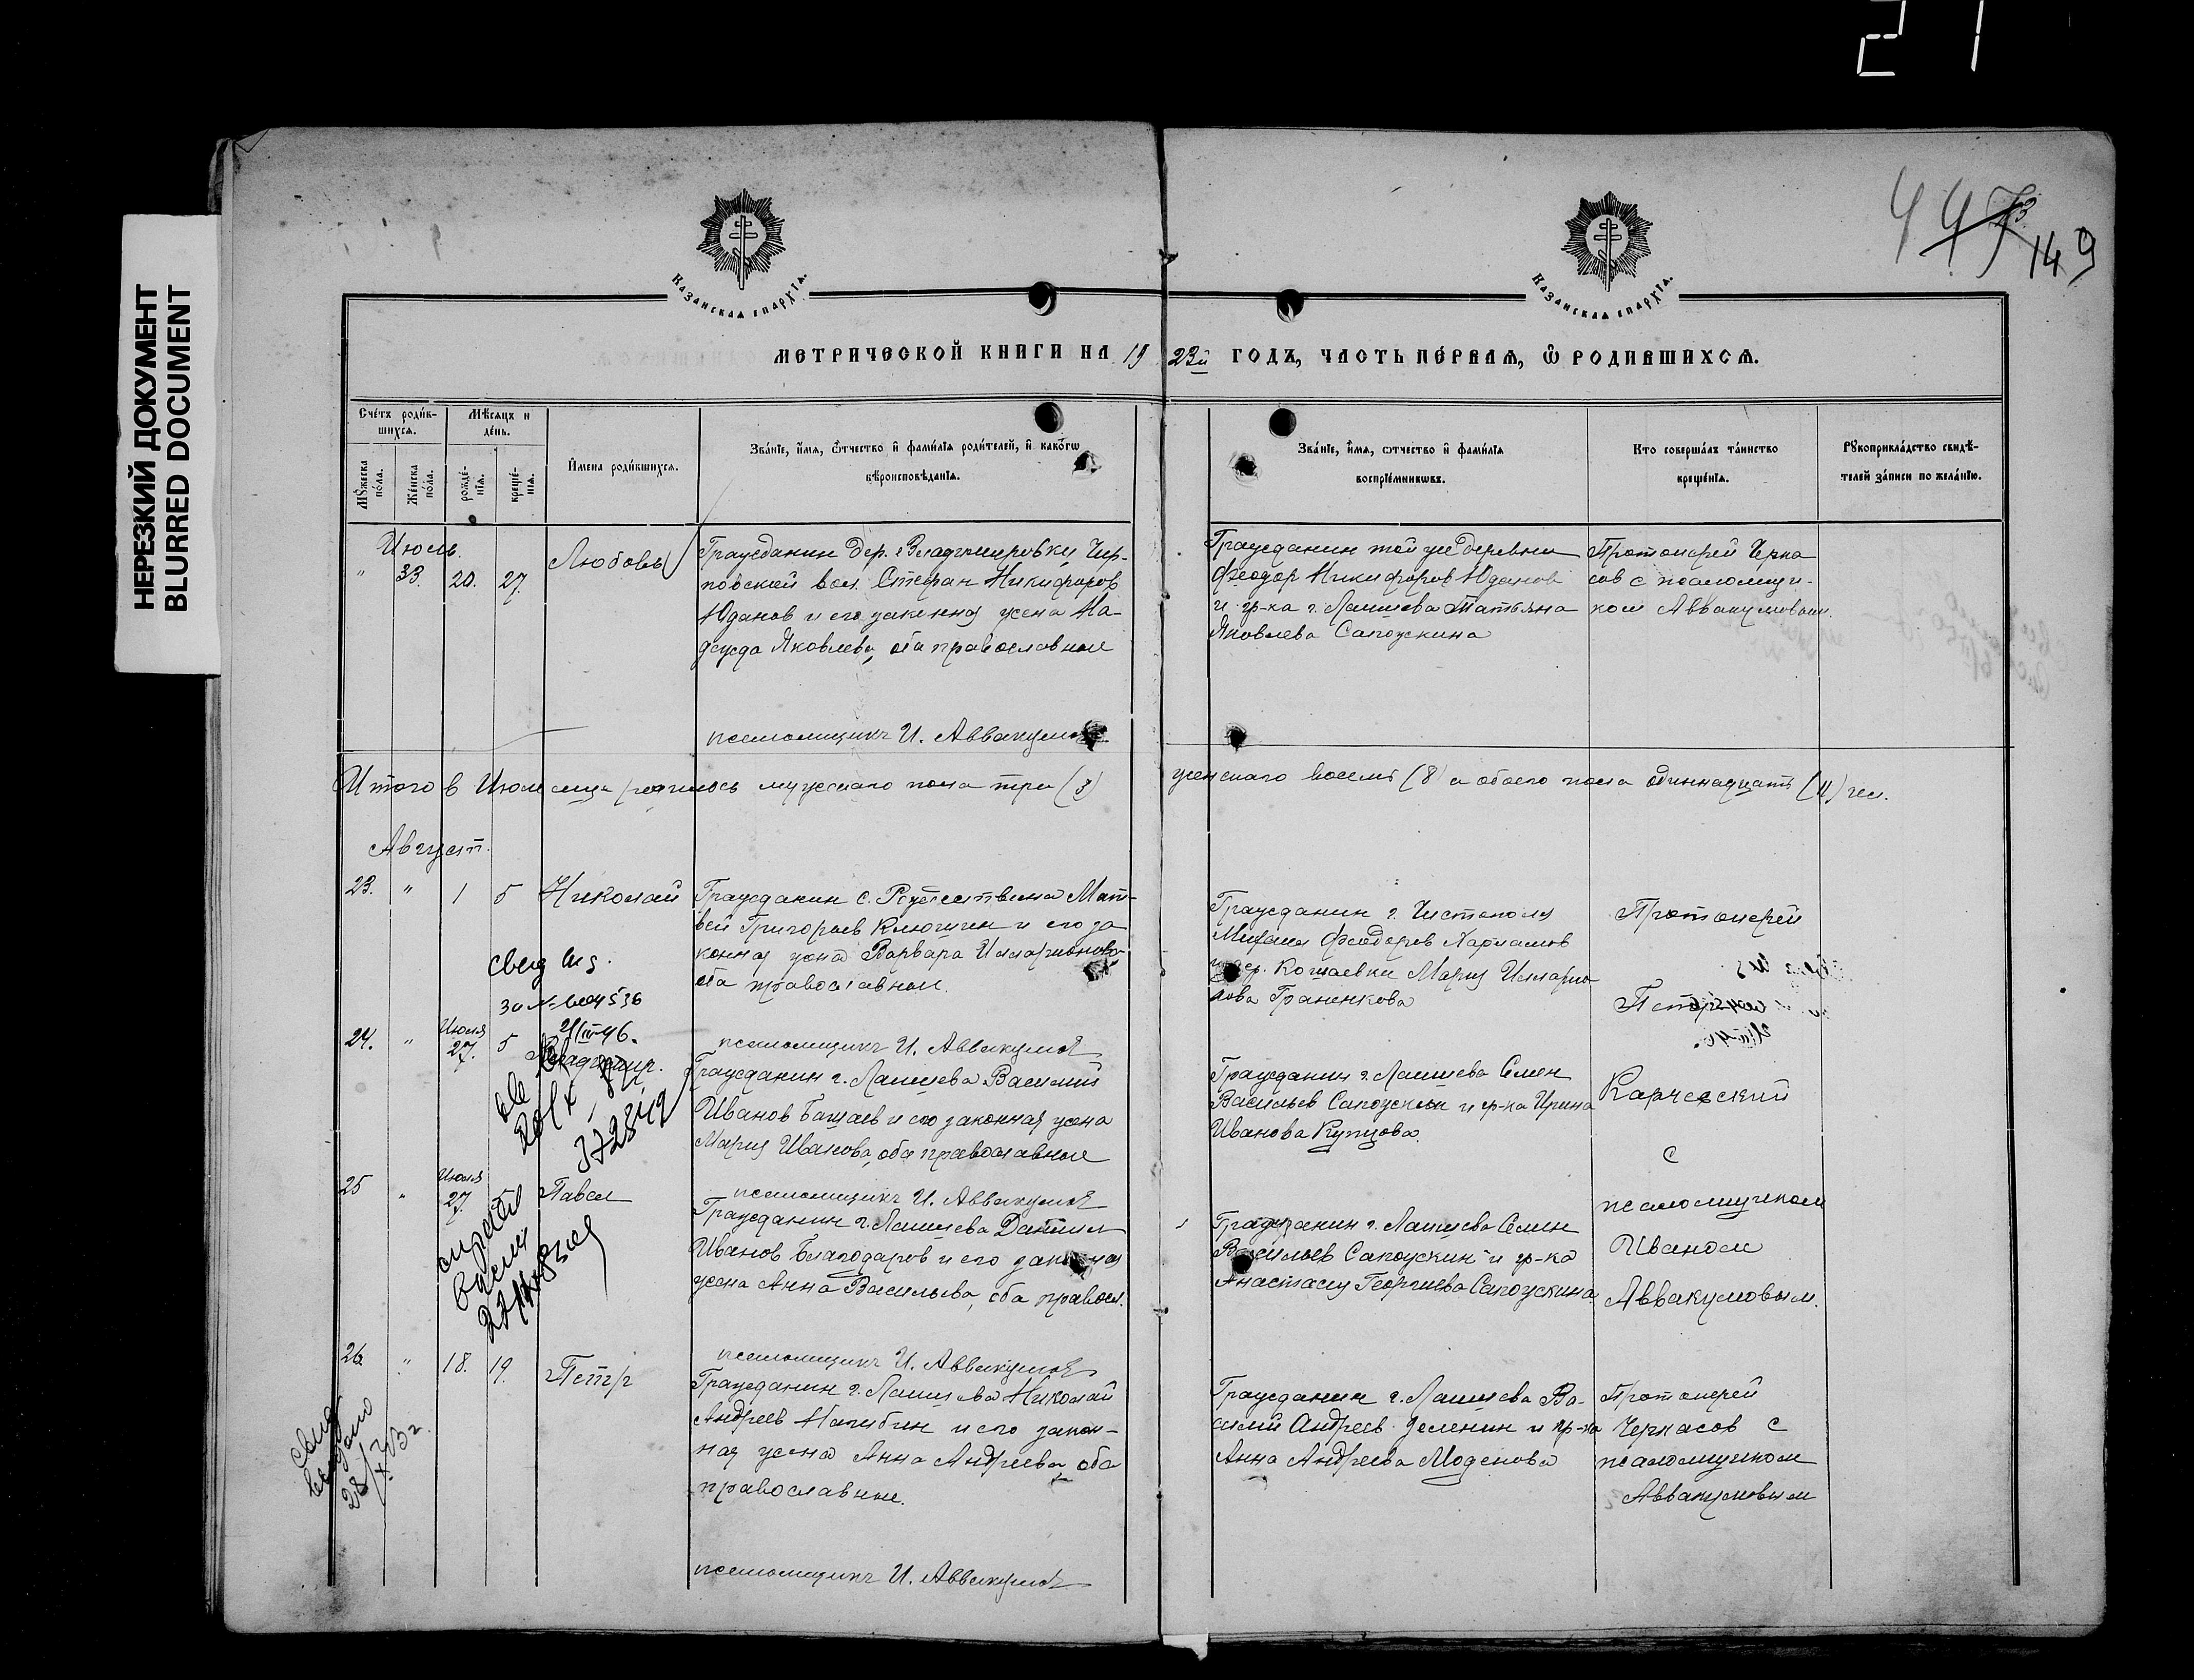 21
НЕРЕЗКИЙ ДОКУМЕНТ
BLURRED DOCUMENT
149
КАЗАНСКАЯ ЕПАРХІЯ.
КАЗАНСКАЯ ЕПАРХІЯ.
МЕТРИЧЕСКОЙ КНИГИ НА 1923й ГОДЪ, ЧАСТЬ ПЕ́РВАЯ, Ѿ РОДИВШИХСЯ.
Сче́тъ роди́в-
шихся.
Мѣсяцъ и
де́нь.
Мꙋ́жеска
по́ла.
Же́нска
по́ла.
рожде́-
нїѧ.
креще́-
нїѧ.
И҆мена роди́вшихсѧ.
Зва́нїе, и҆́мѧ, ѻ҆́тчество и҆ фами́лїѧ роди́телей, и҆ како́гѡ
вѣроисповѣ́данїѧ.
Зва́нїе, и҆́мѧ, ѻ҆́тчество и҆ фами́лїѧ
воспрїе́мникѡвъ.
Кто соверша́лъ та́инство
креще́нїѧ.
Рꙋкоприкла́дство свидѣ́-
телей за́писи по жела́нїю.
Июль.
" 33. 20. 27.
Любовь
Гражданин дер. Владимировки, Чир-
повской вол. Стефан Никифоров
Юданов и его законная жена На-
дежда Яковлева, оба православные
Гражданин той же деревни
Феодор Никифоров Юданов
и гр-ка г. Лаишева Татьяна
Яковлева Сапожкина
Протоиерей Черка
сов с псаломщи-
ком Аввакумовым.
псаломщикъ И. Аввакумов
Итого в Июле родилось мужескаго пола три (3)
женскаго восемь (8) а обоего пола одиннадцать (11) чел.
Август.
23. " 1 5 Николай
Гражданин с. Рождествена Мат-
вей Григорьев Ключигин и его за
конная жена Варвара Илларионова
оба православные.
Гражданин г. Чистополя
Михаил Феодоров Харламов
и дер. Кошаевки Мария Илларио-
нова Граненкова
Протоиерей
Петр
Карчевский
с
псаломщиком
Иваном
Аввакумовым.
21/III-46.
псаломщикъ И. Аввакумов
24. " Июля 27. 5 Владимир.
Гражданин г. Лаишева Василий
Иванов Баташев и его законная жена
Мария Иванова, оба православные
Гражданин г. Лаишева Семен
Васильев Сапожкин и гр-ка Ирина
Иванова Купцова.
псаломщикъ И. Аввакумов
25 " Июля 27. 5 Павел
Гражданин г. Лаишева Даниил
Иванов Благодаров и его законная
жена Анна Васильева, оба правосл.
Гражданин г. Лаишева Семен
Васильев Сапожкин и гр-ка
Анастасия Георгиева Сапожкина
псаломщикъ И. Аввакумов
26. " 18. 19. Петр
Гражданин г. Лаишева Николай
Андреев Нагибин и его закон-
ная жена Анна Андреева, оба
православные.
Гражданин г. Лаишева Ва-
силий Андреев Зеленин и гр-ка
Анна Андреева Моденова
Протоиерей
Черкасов с
псаломщиком
Аввакумовым
псаломщикъ И. Аввакумов